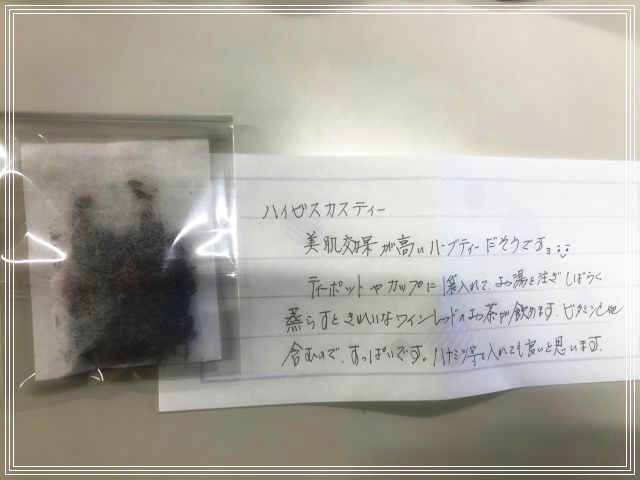 ハイビスカスティー
美肌効果が高いハーブティーだそうです。
ティーポットやカップに1袋入れて、お湯を注ぎしばらく
蒸らすときれいなワインレッドのお茶が飲めます。ビタミンC他
含むので、すっぱいです。ハチミツ等を入れても良いと思います。